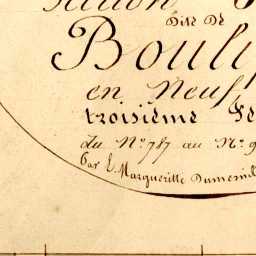 Dite De
Bouli
en Neuf
troisième Fe
du Nº 787 au Nº 9
Par E. Margueritte Dumesnil